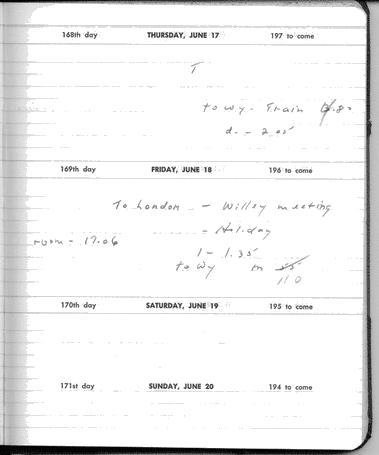 168th day THURSDAY, JUNE 17 197 to come
T
to Wy - Train
d. - 2.05
169th day FRIDAY, JUNE 18 196 to come
To London - Willey meeting
- Holiday
room - 17.06
1 - 1.35
to Wy m 55
110
170th day SATURDAY, JUNE 19 195 to come
171st day SUNDAY, JUNE 20 194 to come